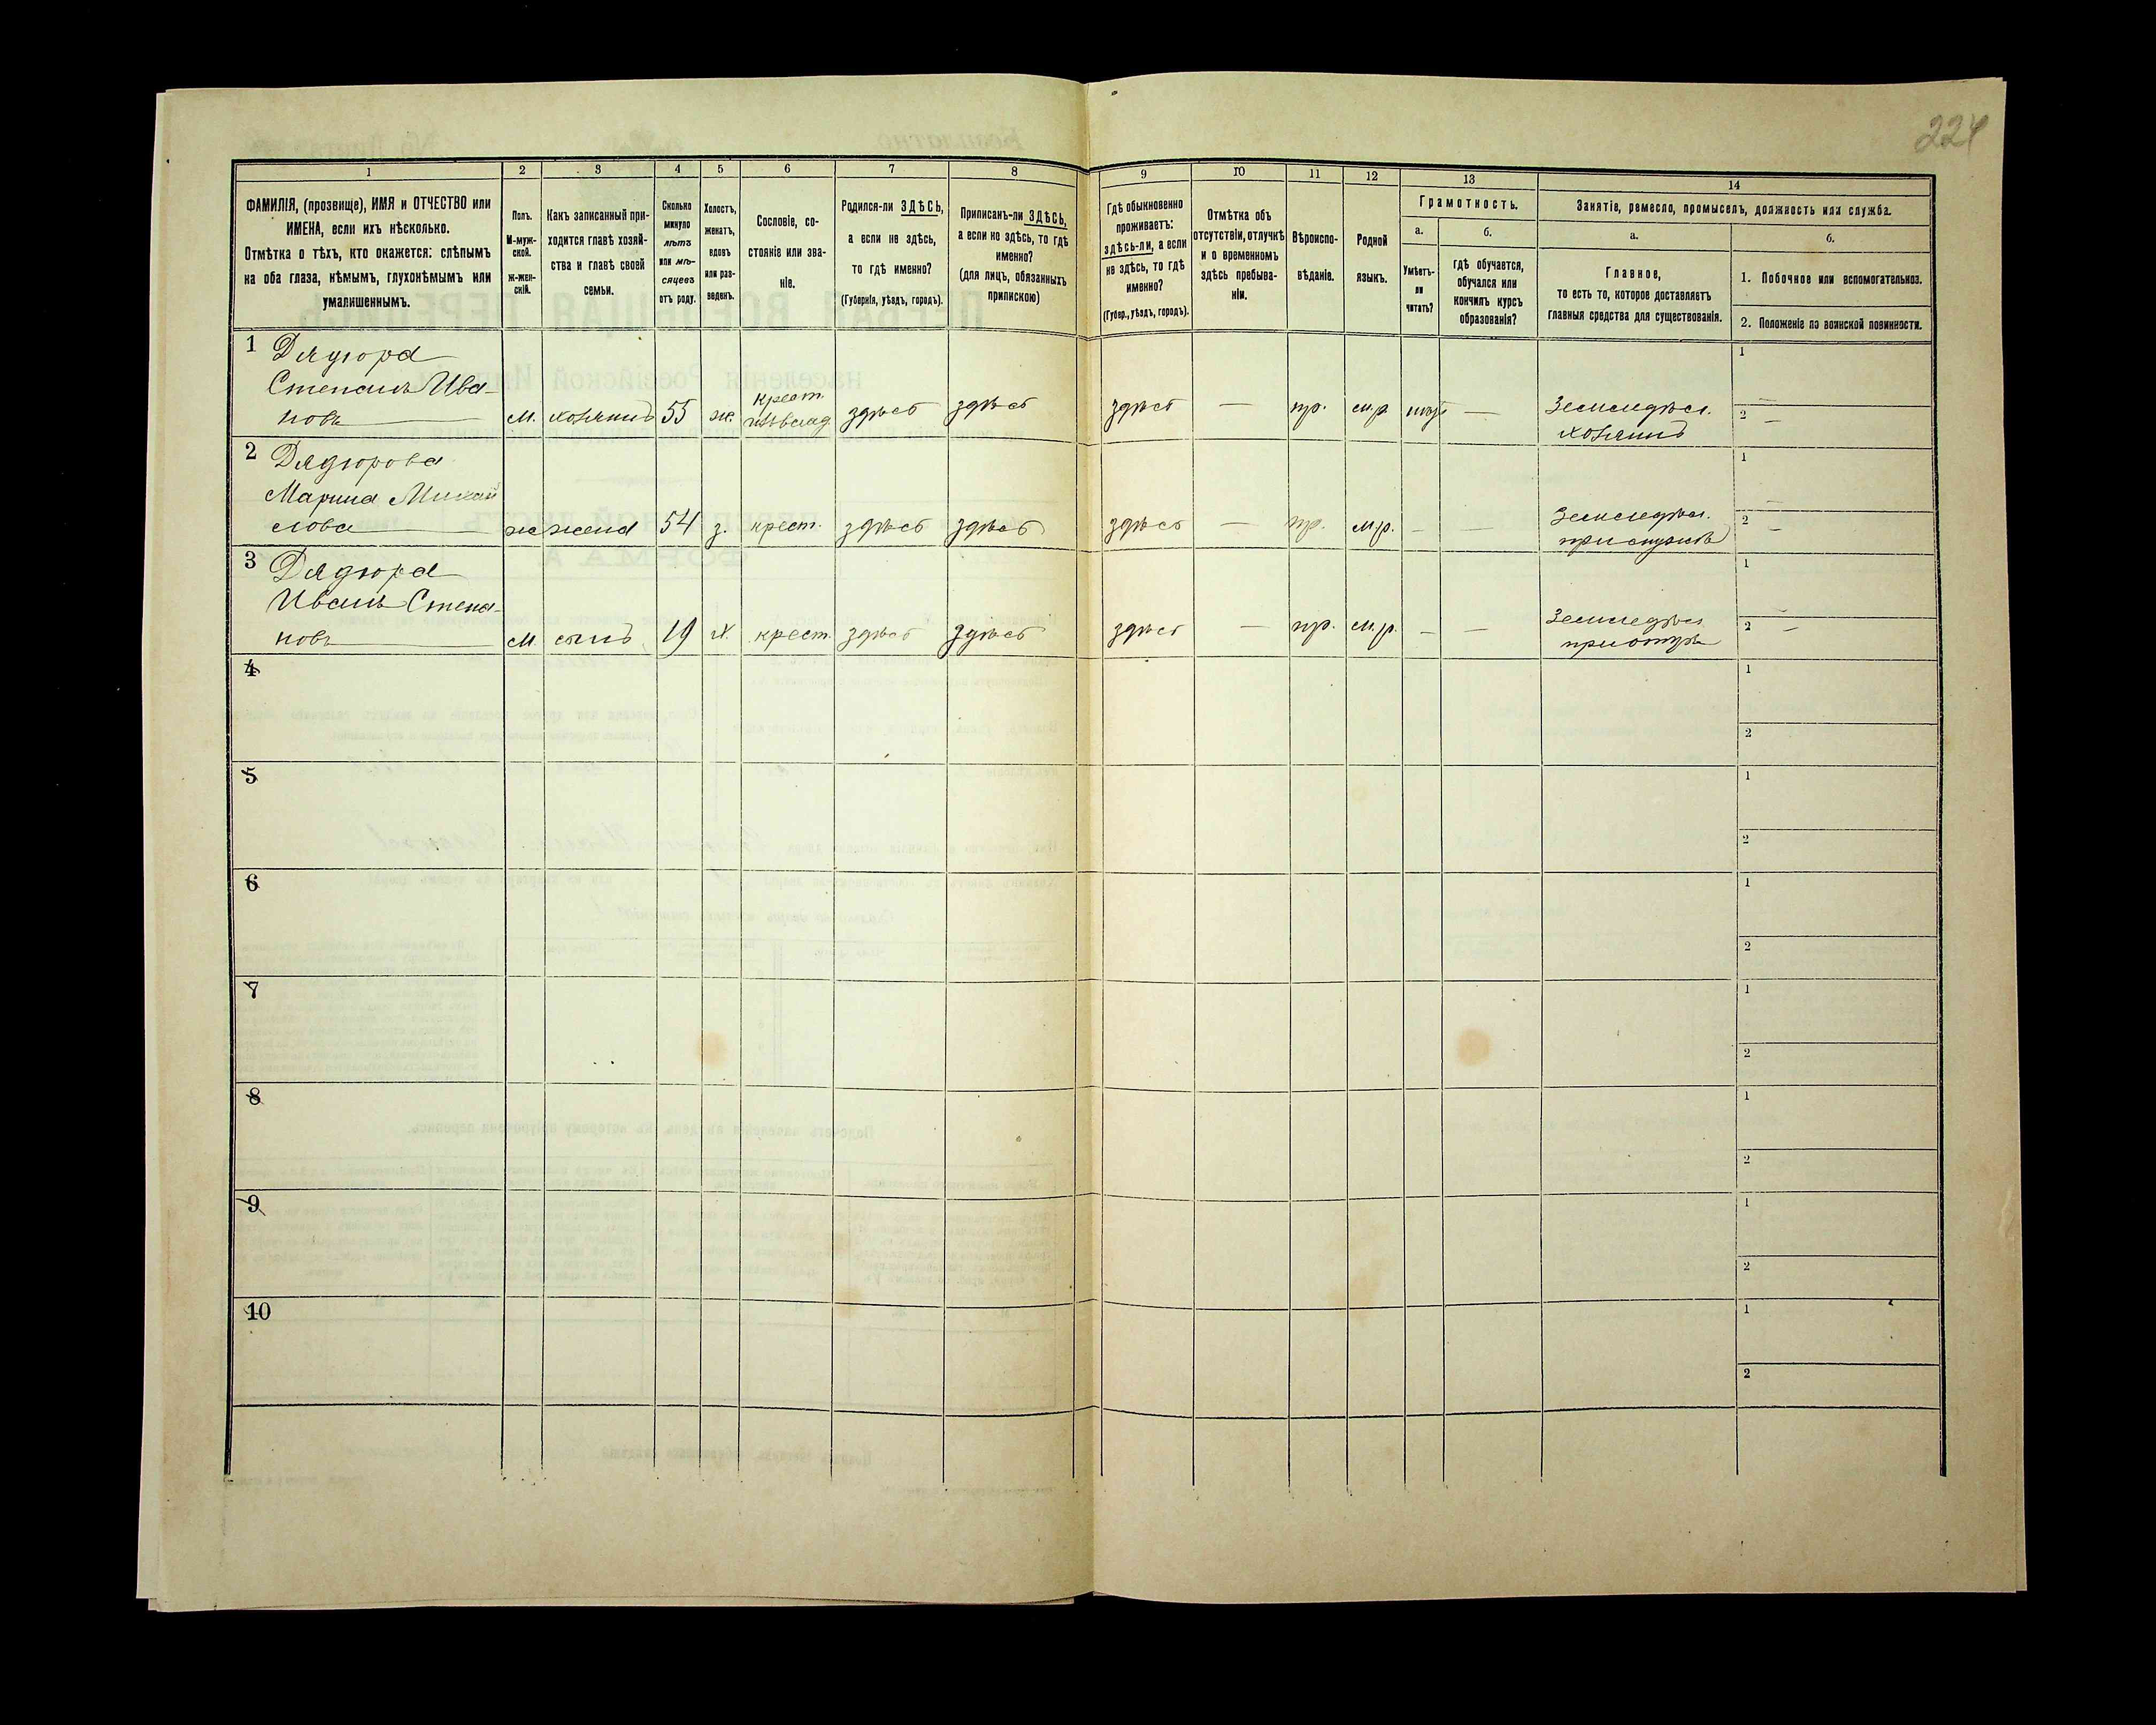 224
1
2
3
4
5
6
7
8
9
10
11
12
13
14
ФАМИЛІЯ, (прозвище), ИМЯ и ОТЧЕСТВО или
ИМЕНА, если ихъ нѣсколько.
Отмѣтка о тѣхъ, кто окажется: слѣпымъ
на оба глаза, нѣмымъ, глухонѣмымъ или
умалишеннымъ.
Полъ.
М-муж-
ской.
Ж-жен-
скій.
Какъ записанный при-
ходится главѣ хозяй-
ства и главѣ своей
семьи.
Сколько
минуло
лѣтъ
или мѣ-
сяцевъ
отъ роду.
Холостъ,
женатъ,
вдовъ
или раз-
веденъ.
Сословіе, со-
стояніе или зва-
ніе.
Родился-ли ЗДѢСЬ,
а если не здѣсь,
то гдѣ именно?
(Губернія, уѣздъ, городъ).
Приписанъ-ли ЗДѢСЬ,
а если не здѣсь, то гдѣ
именно?
(для лицъ, обязанныхъ
припискою)
Гдѣ обыкновенно
проживаетъ:
здѣсь-ли, а если
не здѣсь, то гдѣ
именно?
(Губер., уѣздъ, городъ).
Отмѣтка объ
отсутствіи, отлучкѣ
и о временномъ
здѣсь пребыва-
ніи.
Вѣроиспо-
вѣданіе.
Родной
языкъ.
Грамотность.
а.
Умѣетъ-
ли
читать?
б.
гдѣ обучается,
обучался или
кончилъ курсъ
образованія?
Занятіе, ремесло, промыселъ, должность или служба.
а.
Главное,
то есть то, которое доставляетъ
главныя средства для существованія.
б.
1. Побочное или вспомогательное.
2. Положеніе по воинской повинности.
1 Дядюра
Степанъ Ива-
новъ
М. хозяинъ 55 ж. крест.
здѣсь здѣсь здѣсь — пр. м.р. —
Земледѣл.
хозяинъ
1 —
2 —
2 Дядюрова
Марина Михай
лова
ж жена 54 з. крест. здѣсь здѣсь здѣсь — пр. м.р. — —
Земледѣл.
1 —
2 —
3 Дядюра
Иванъ Степа-
новъ
М. сынъ 19 х. крест. здѣсь здѣсь здѣсь — пр. м.р. — —
Земледѣл.
при отцѣ
1 —
2 —
4
1
2
5
1
2
6
1
2
7
1
2
8
1
2
9
1
2
10
1
2